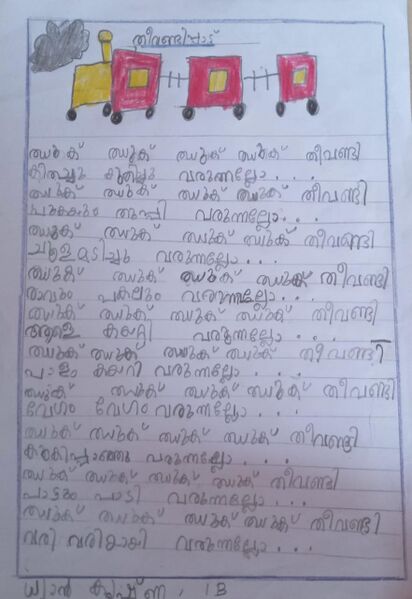 തീവണ്ടിപ്പാട്ട്
ഝുക് ഝുക് ഝുക് ഝുക് തീവണ്ടി
കിതച്ചു കുതിച്ചു വരുന്നല്ലോ....
ഝുക് ഝുക് ഝുക് ഝുക് തീവണ്ടി
പുകയും തുപ്പി വരുന്നല്ലോ...
ഝുക് ഝുക് ഝുക് ഝുക് തീവണ്ടി
ചൂളമടിച്ചു വരുന്നല്ലോ...
ഝുക് ഝുക് ഝുക് ഝുക് തീവണ്ടി
രാവും പകലും വരുന്നല്ലോ...
ഝുക് ഝുക് ഝുക് ഝുക് ഝുക് തീവണ്ടി
ആളെ കയറ്റി വരുന്നല്ലോ....
ഝുക് ഝുക് ഝുക് ഝുക് തീവണ്ടി
പാളം കയറി വരുന്നല്ലോ....
ഝുക് ഝുക് ഝുക് ഝുക് തീവണ്ടി
വേഗം വേഗം വരുന്നല്ലോ....
ഝുക് ഝുക് ഝുക് ഝുക് ഝുക് തീവണ്ടി
കൂകിപ്പാഞ്ഞു വരുന്നല്ലോ....
ഝുക് ഝുക് ഝുക് ഝുക് ഝുക് തീവണ്ടി
പാട്ടും പാടി വരുന്നല്ലോ...
ഝുക് ഝുക് ഝുക് ഝുക് തീവണ്ടി
വരി വരിയായി വരുന്നല്ലോ....
ധ്യാൻ കൃഷ്ണ, 1 B